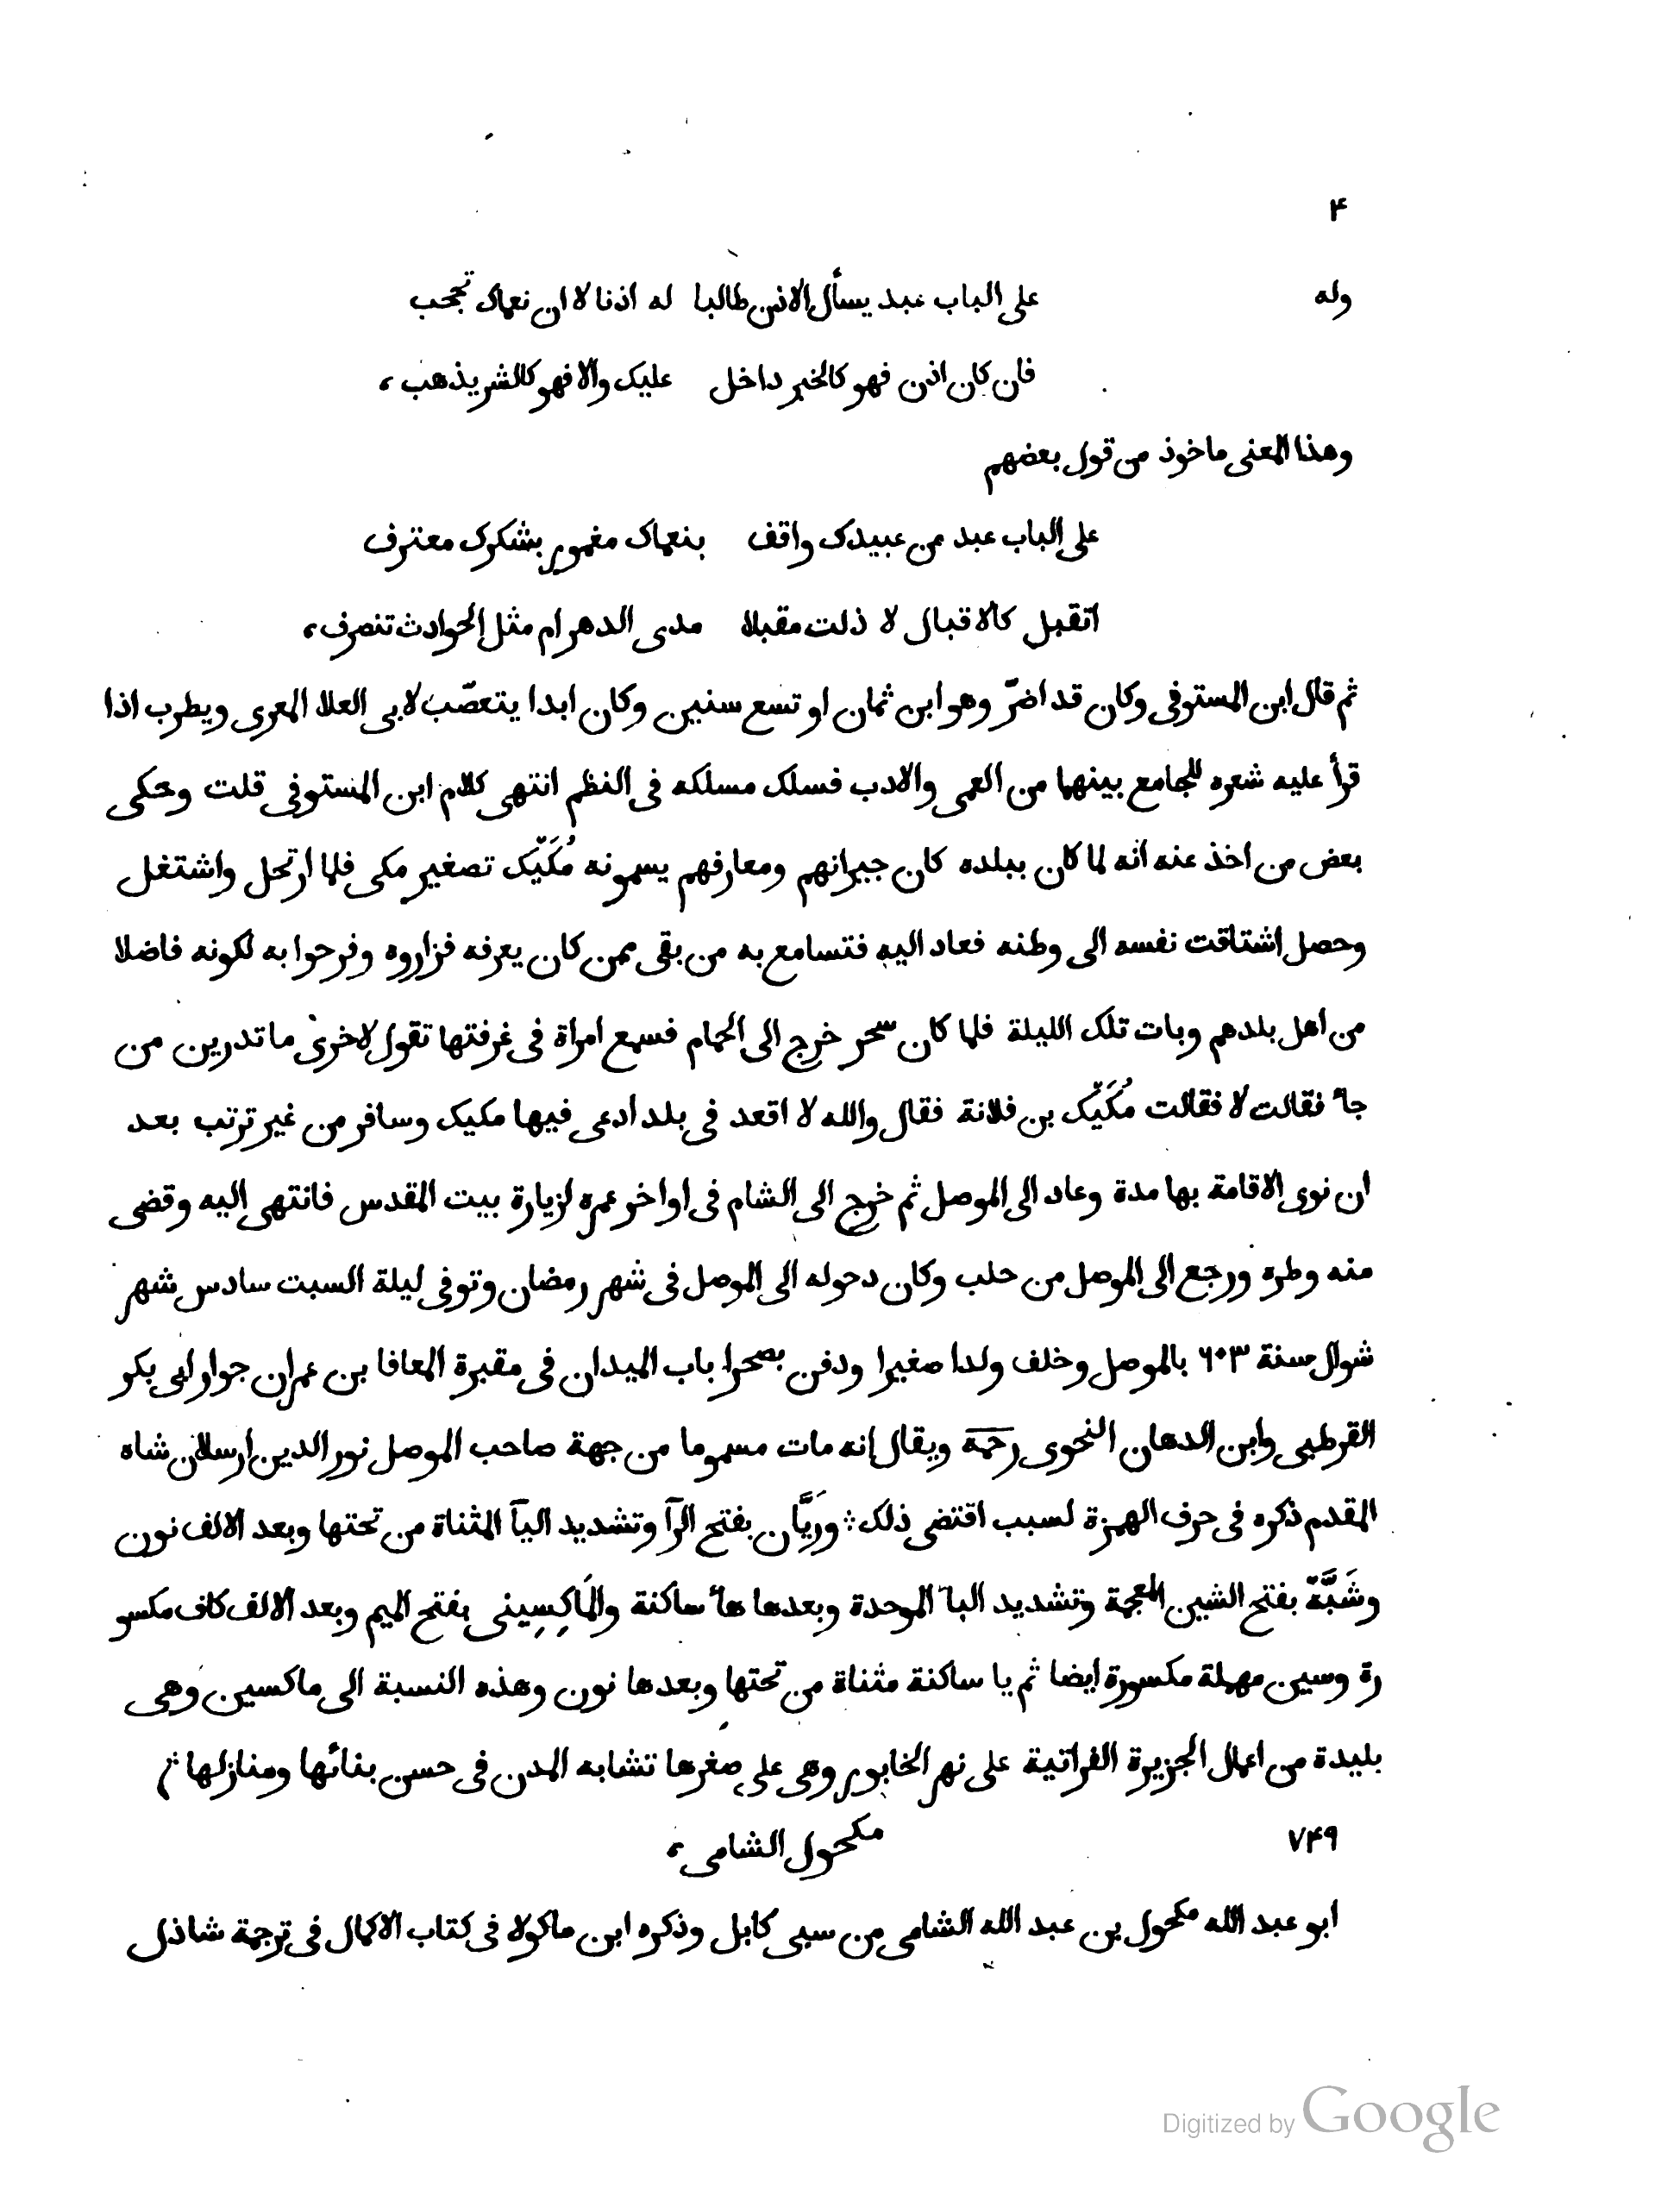 ۴
وله على الباب عبد يسأل الاذن طالبا له اذنا لا ان نعماك تحجب
فان كان اذن فهو كالخير داخل عليك والا فهو كالشر يذهب،
وهذا المعنى ماخوذ من قول بعضهم
على الباب عبد من عبيدك واقف بنعماك مغمور بشكرك معترف
اتقبل كالاقبال لا ذلت مقبلا مدى الدهر ام مثل الحوادث تنصرف،
ثم قال ابن المستوفى وكان قد اضرّ وهو ابن ثمان او تسع سنين وكان ابدا يتعصّب لابى العلا المعرى ويطرب اذا
قرأ عليه شعره للجامع بينهما من العمى والادب فسلك مسلكه فى النظم انتهى كلام ابن المستوفى قلت وحكى
بعض من اخذ عنه انه لما كان ببلده كان جيرانهم ومعارفهم يسمونه مُكَيّك تصغير مكى فلما ارتحل واشتغل
وحصل اشتاقت نفسه الى وطنه فعاد اليه فتسامع به من بقى ممن كان يعرفه فزاروه وفرحوا به لكونه فاضلا
من اهل بلدهم وبات تلك الليلة فلما كان سحر خرج الى الحمام فسمع امراة فى غرفتها تقول لاخرى ما تدرين من
جاء فقالت لا فقالت مُكَيّك بن فلانة فقال والله لا اقعد فى بلد ادعى فيها مكيك وسافر من غير ترتب بعد
ان نوى الاقامة بها مدة وعاد الى الموصل ثم خرج الى الشام فى اواخر عمره لزيارة بيت المقدس فانتهى اليه وقضى
منه وطره ورجع الى الموصل من حلب وكان دحوله الى الموصل فى شهر رمضان وتوفى ليلة السبت سادس شهر
شوال سنة ۶۰۳ بالموصل وخلف ولدا صغيرا ودفن بصحرا باب الميدان فى مقبرة المعافا بن عمران جوار ابى بكر
القرطبى وابن الدهان النحوى رحمه ويقال انه مات مسموما من جهة صاحب الموصل نور الدين ارسلان شاه
المقدم ذكره فى حرف الهمزة لسبب اقتضى ذلك ؛ ورَيَّان بفتح الرآ وتشديد اليآ المثناة من تحتها وبعد الالف نون
وشَبَّة بفتح الشين المعجمة وتشديد الباء الموحدة وبعدها هاء ساكنة والمَاكِسِينى بفتح الميم وبعد الالف كاف مكسو
رة وسين مهملة مكسورة ايضا ثم يا ساكنة مثناة من تحتها وبعدها نون وهذه النسبة الى ماكسين وهى
بليدة من اعمال الجزيرة الفراتية على نهر الخابور وهى على صغرها تشابه المدن فى حسن بنائها ومنازلها
۷۴۹ مكحول الشامى،
ابو عبد الله مكحول بن عبد الله الشامى من سبى كابل وذكره ابن ماكولا فى كتاب الاكمال فى ترجمة شاذل
Digitized by Google